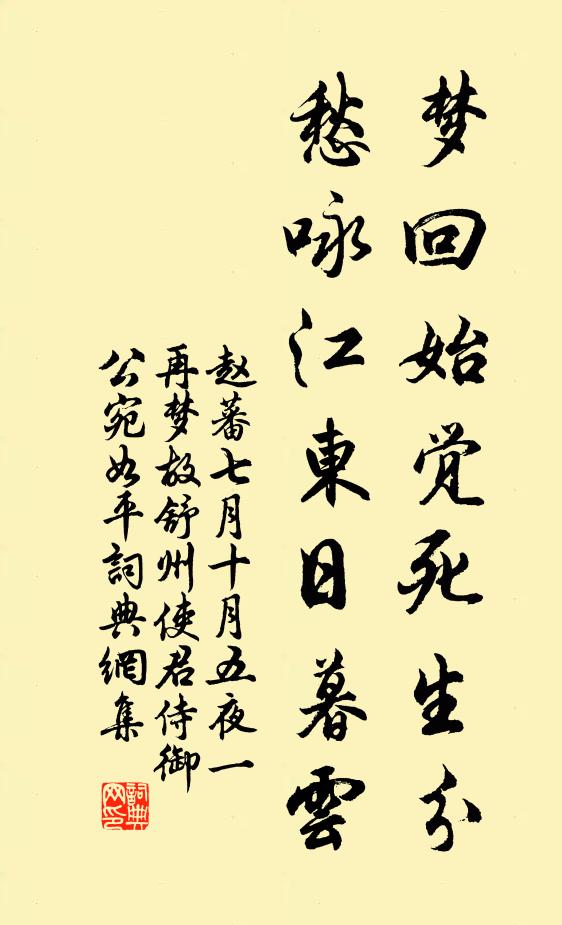 梦回始觉死生分
愁咏江東日暮雲
赵蕃七月十月五夜一
再梦故舒州使君侍御
公宛如平詞典網集
詞典网印